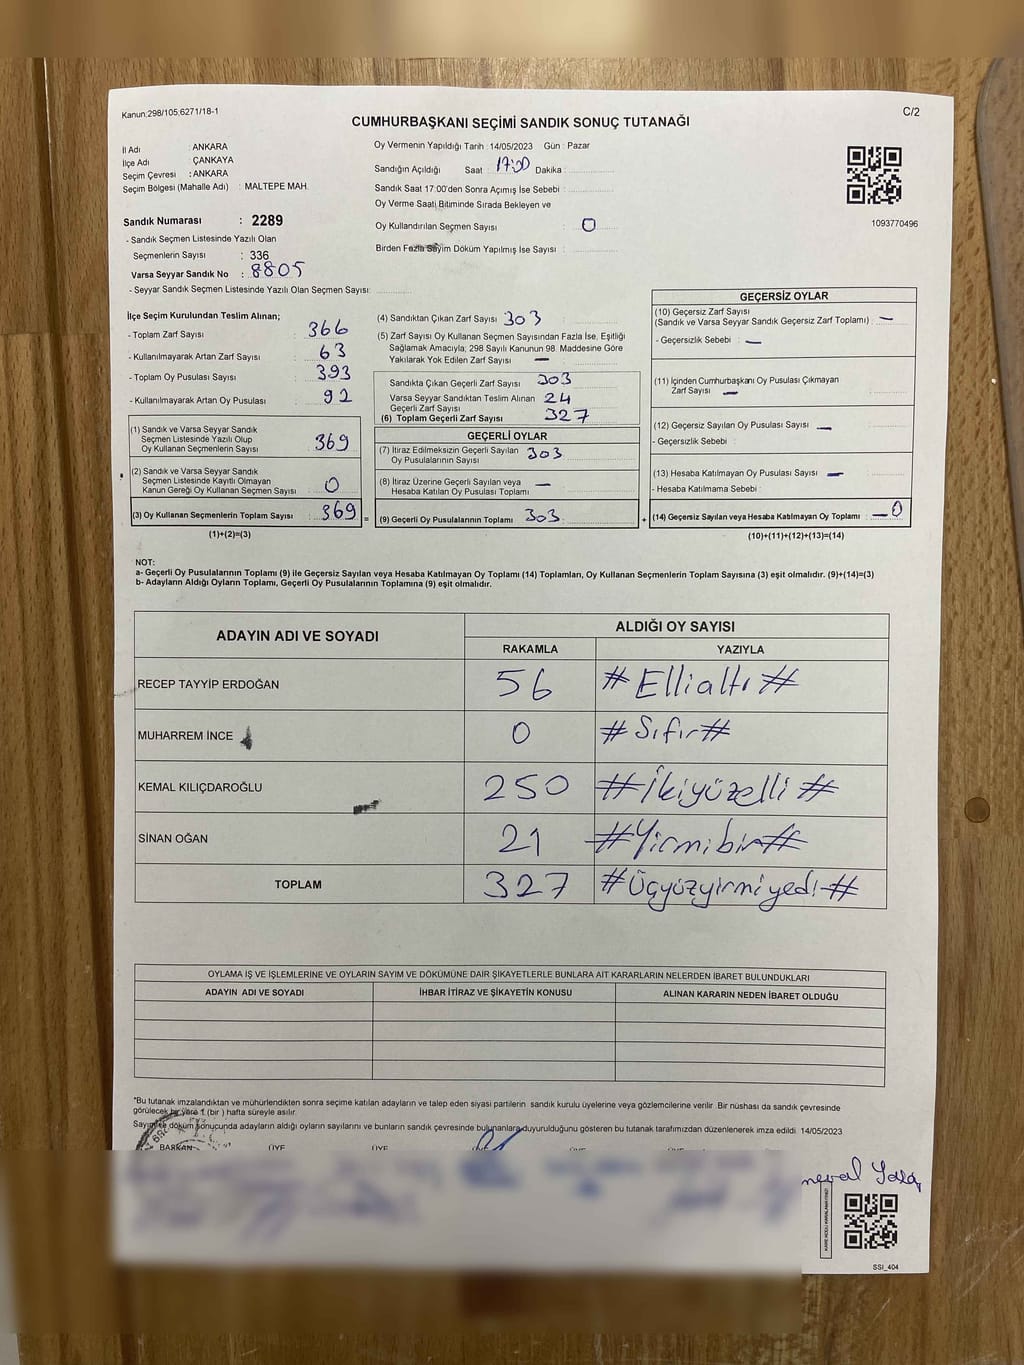 Kanun;298/105;6271/18-1
C/2
CUMHURBAŞKANI SEÇİMİ SANDIK SONUÇ TUTANAĞI
İl Adı : ANKARA
İlçe Adı : ÇANKAYA
Seçim Çevresi : ANKARA
Seçim Bölgesi (Mahalle Adı) : MALTEPE MAH.
Sandık Numarası : 2289
- Sandık Seçmen Listesinde Yazılı Olan
Seçmenlerin Sayısı : 336
Varsa Seyyar Sandık No : 8805
- Seyyar Sandık Seçmen Listesinde Yazılı Olan Seçmen Sayısı:
Oy Vermenin Yapıldığı Tarih : 14/05/2023 Gün : Pazar
Sandığın Açıldığı Saat : 17:00 Dakika :
Sandık Saat 17:00'den Sonra Açımış İse Sebebi :
Oy Verme Saati Bitiminde Sırada Bekleyen ve
Oy Kullandırılan Seçmen Sayısı : 0
Birden Fazla Sayim Döküm Yapılmış İse Sayısı :
1093770496
İlçe Seçim Kurulundan Teslim Alınan;
- Toplam Zarf Sayısı : 366
- Kullanılmayarak Artan Zarf Sayısı : 63
- Toplam Oy Pusulası Sayısı : 393
- Kullanılmayarak Artan Oy Pusulası : 92
(1) Sandık ve Varsa Seyyar Sandık
Seçmen Listesinde Yazılı Olup
Oy Kullanan Seçmenlerin Sayısı : 369
(2) Sandık ve Varsa Seyyar Sandık
Seçmen Listesinde Kayıtlı Olmayan
Kanun Gereği Oy Kullanan Seçmen Sayısı : 0
(3) Oy Kullanan Seçmenlerin Toplam Sayısı : 369 =
(1)+(2)=(3)
(4) Sandıktan Çıkan Zarf Sayısı : 303
(5) Zarf Sayısı Oy Kullanan Seçmen Sayısından Fazla İse, Eşitliği
Sağlamak Amacıyla; 298 Sayılı Kanunun 98. Maddesine Göre
Yakılarak Yok Edilen Zarf Sayısı : —
Sandıkta Çıkan Geçerli Zarf Sayısı : 303
Varsa Seyyar Sandıktan Teslim Alınan : 24
Geçerli Zarf Sayısı
(6) Toplam Geçerli Zarf Sayısı : 327
GEÇERLİ OYLAR
(7) İtiraz Edilmeksizin Geçerli Sayılan
Oy Pusulalarının Sayısı : 303
(8) İtiraz Üzerine Geçerli Sayılan veya
Hesaba Katılan Oy Pusulası Toplamı : —
(9) Geçerli Oy Pusulalarının Toplamı : 303 +
GEÇERSİZ OYLAR
(10) Geçersiz Zarf Sayısı
(Sandık ve Varsa Seyyar Sandık Geçersiz Zarf Toplamı) : —
- Geçersizlik Sebebi : —
(11) İçinden Cumhurbaşkanı Oy Pusulası Çıkmayan
Zarf Sayısı : —
(12) Geçersiz Sayılan Oy Pusulası Sayısı : —
- Geçersizlik Sebebi :
(13) Hesaba Katılmayan Oy Pusulası Sayısı : —
- Hesaba Katılmama Sebebi :
(14) Geçersiz Sayılan veya Hesaba Katılmayan Oy Toplamı : — 0
(10)+(11)+(12)+(13)=(14)
NOT:
a- Geçerli Oy Pusulalarının Toplamı (9) ile Geçersiz Sayılan veya Hesaba Katılmayan Oy Toplamı (14) Toplamları, Oy Kullanan Seçmenlerin Toplam Sayısına (3) eşit olmalıdır. (9)+(14)=(3)
b- Adayların Aldığı Oyların Toplamı, Geçerli Oy Pusulalarının Toplamına (9) eşit olmalıdır.
ADAYIN ADI VE SOYADI
ALDIĞI OY SAYISI
RAKAMLA YAZIYLA
RECEP TAYYİP ERDOĞAN 56 #Ellialtı#
MUHARREM İNCE 0 #Sıfır#
KEMAL KILIÇDAROĞLU 250 #İkiyüzelli#
SİNAN OĞAN 21 #Yirmibir#
TOPLAM 327 #Üçyüzyirmiyedi#
OYLAMA İŞ VE İŞLEMLERİNE VE OYLARIN SAYIM VE DÖKÜMÜNE DAİR ŞİKAYETLERLE BUNLARA AİT KARARLARIN NELERDEN İBARET BULUNDUKLARI
ADAYIN ADI VE SOYADI İHBAR İTİRAZ VE ŞİKAYETİN KONUSU ALINAN KARARIN NEDEN İBARET OLDUĞU
*Bu tutanak imzalandıktan ve mühürlendikten sonra seçime katılan adayların ve talep eden siyasi partilerin sandık kurulu üyelerine veya gözlemcilerine verilir. Bir nüshası da sandık çevresinde
görülecek bir yere 1 (bir) hafta süreyle asılır.
Sayım ve döküm sonucunda adayların aldığı oyların sayılarını ve bunların sandık çevresinde bulunanlara duyurulduğunu gösteren bu tutanak tarafımızdan düzenlenerek imza edildi. 14/05/2023
BAŞKAN ÜYE ÜYE ÜYE ÜYE ÜYE
SSI_404